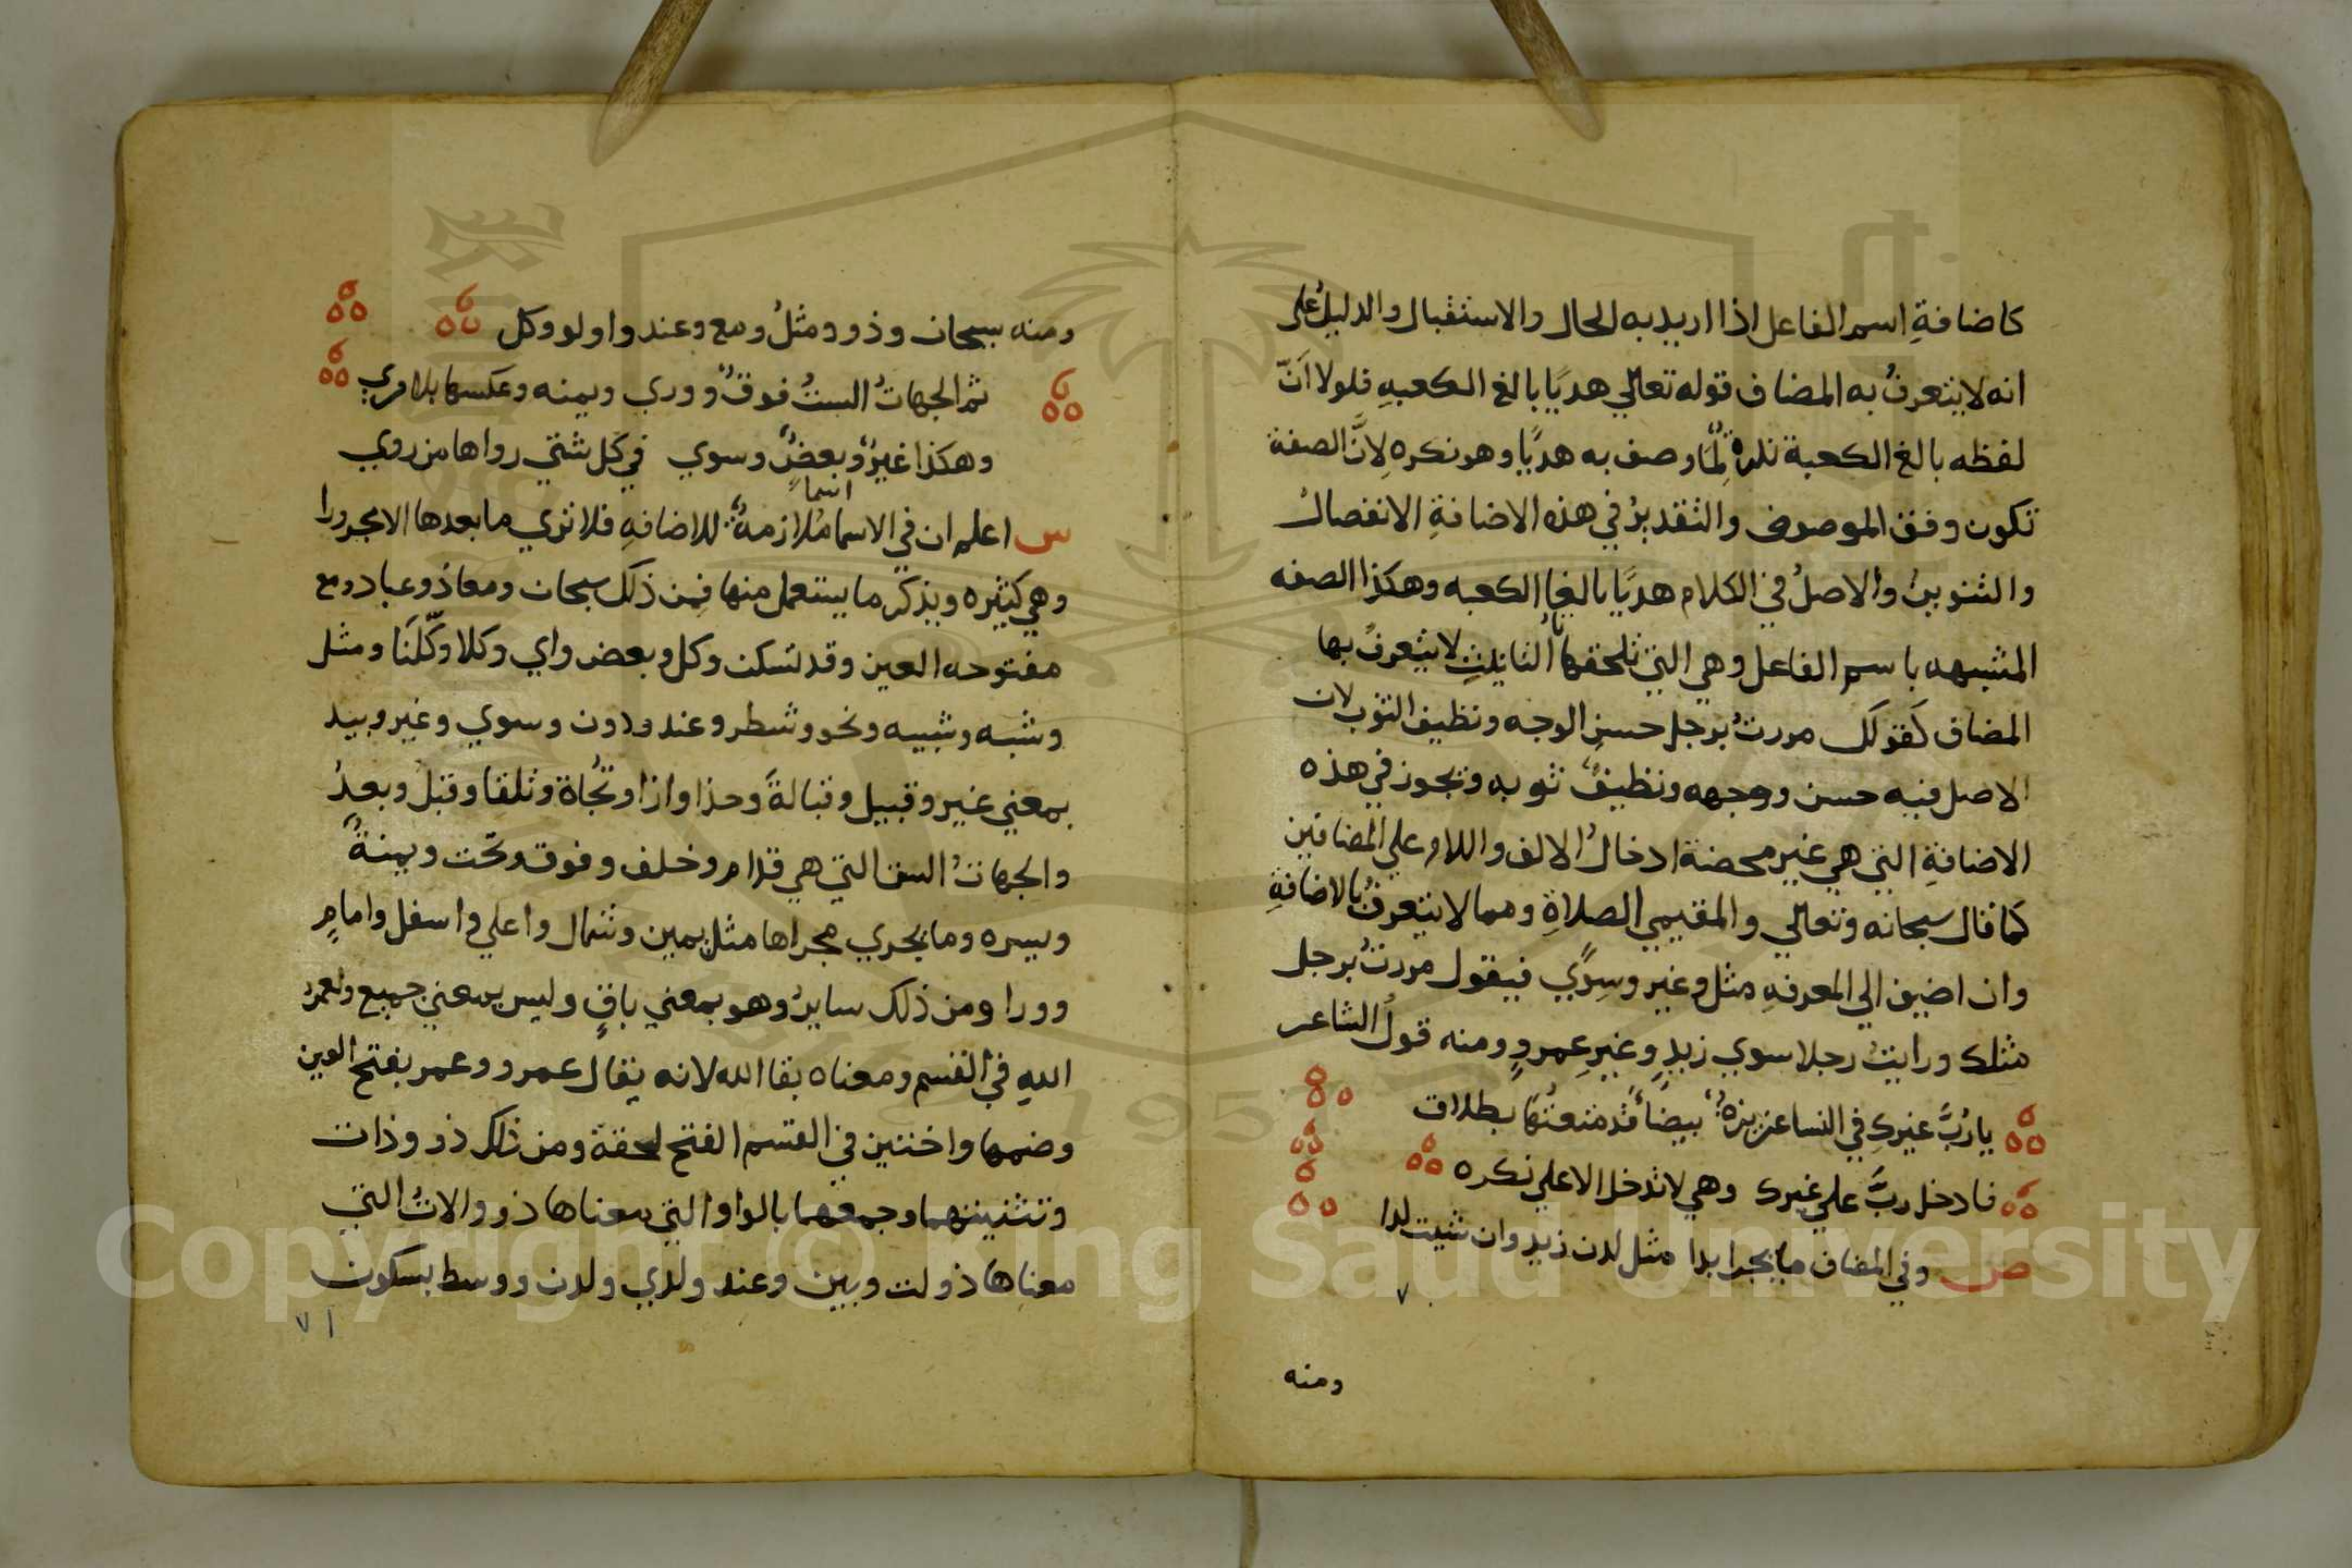 كاضافةِ اسم الفاعل اذا اريد به الحال والاستقبال والدليلُ على
انه لا يتعرفُ به المضاف قوله تعالي هديًا بالغ الكعبهِ فلولا اَنّ
لفظه بالغ الكعبة نكرةٌ لمَا وصف به هديًا وهو نكره لِانَّ الصفة
تكون وفق الموصوف والتقديرُ في هذه الاضافةِ الانفصالُ
والتنوينُ والاصلُ في الكلام هديًا بالغا الكعبه وهكذا الصفه
المشبهه باسم الفاعل وهي التي تلحقها تا التانيثِ لا يتعرفُ بها
المضاف كَقولك مررتُ برجلٍ حسنِ الوجه ونظيف الثوب لان
الاصل فيه حسن وجهه ونظيفٌ ثوبه وتجوز في هذه
الاضافةِ التي هي غير محضنة ادخالُ الالف واللام علي المضافين
كمَا قال سبحانه وتعالي والمقيمي الصلاةِ ومما لا يتعرفُ بالاضافةِ
وان اضيف الي المعرفهِ مثل وغير وسِوَي فيقول مررتُ برجل
مثلك ورايتُ رجلا سوي زيدٍ وغيرِ عمروٍ ومنه قولُ الشاعر
يا رُبَّ غيركِ في النسا عزيزةٌ بيضاَ قد متعتُها بطلاق
فادخل ربَّ علي غيرك وهي لا تدخل الا علي نكره
ص وفي المضاف ما يجر ابدا مثل لدن زيدٍ وان شئت لدا
٧٠
ومنه
ومنه سبحان وذو ومثلُ ومع وعند واولو وكل
ثم الجهاتُ الستُ فوقٌ ووري ويمنه وعكسها بلا مري
وهكذا غيرٌ وبعضٌ وسوي في كل شتي رواها من روي
س اعلم ان في الاسما اسماً مُلازمةً للاضافهِ فلا تري ما بعدها الا مجرورا
وهي كثيره ويذكر ما يستعمل منها فمن ذلك سبحان ومعاذ وعباد ومع
مفتوحه العين وقد تسكن وكل وبعض واي وكلا وكلتَا ومثل
وشبه وشبيه ونحو وشطر وعند ودون وسوي وغير وبيد
بمعني غير وقبيل وقبالةً وحذا وازا وتُجاة وتلقا وقبلُ وبعدُ
والجهاتُ الست التي هي قدام وخلف وفوق وتحت ويمنةٌ
ويسره وما يجري مجراها مثل يمين وشمال واعلي واسفل وامامٍ
وورا ومن ذلك سايرُ وهو بمعني باقٍ وليس بمعني جميع ولعمرُ
اللهِ في القسم ومعناه بقا الله لانه يقال عمر وعمر بفتح العين
وضمها واختين في القسم الفتح لخفة ومن ذلك ذو وذات
وتثنيتهما وجمعهما بالواو التي معناها ذوو الاتُ التي
معناها ذولت وبين وعند ولدي ولدن ووسط بسكون
٧١
Copyright © King Saud University